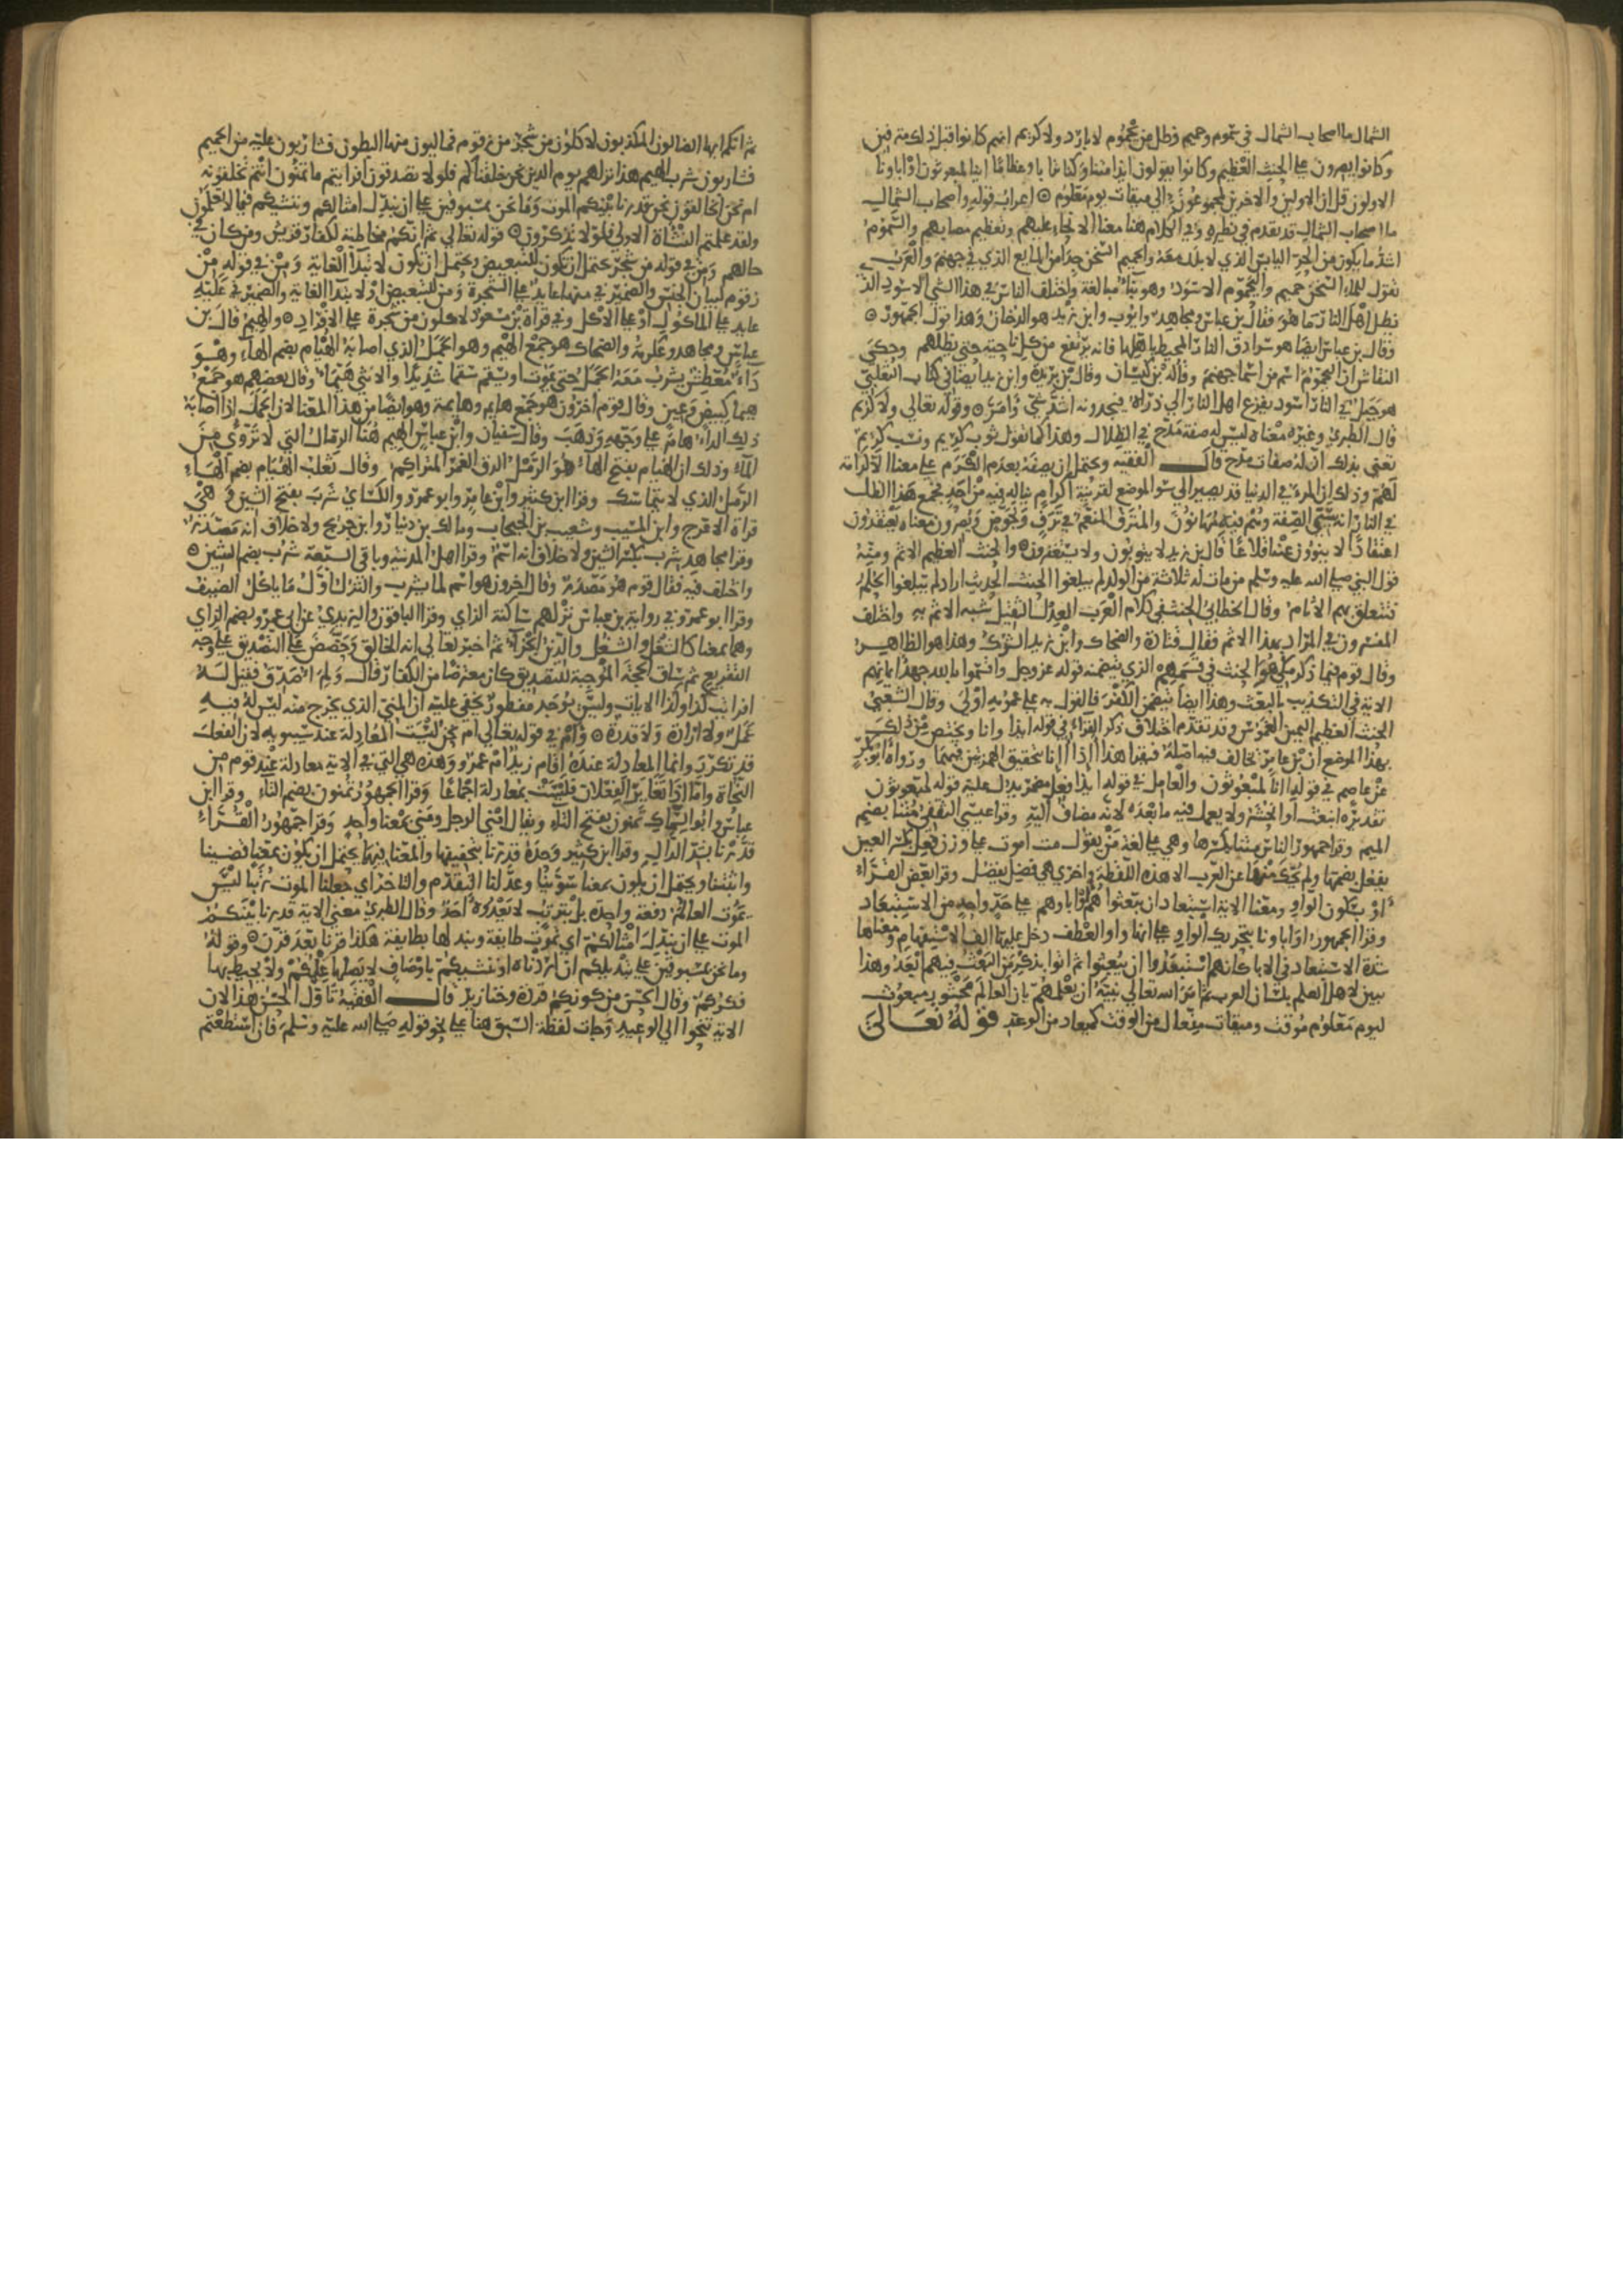 الشمال ما اصحاب الشمال في سموم وحميم وظل من يحموم لا بارد ولا كريم انهم كانوا قبل ذلك مترفين
وكانوا يصرون علي الحنث العظيم وكانوا يقولون ايذا متنا وكنا ترابا وعظاما اينا لمبعوثون او اباونا
الاولون قل ان الاولين والاخرين لمجموعون الي ميقات يوم معلوم ۞ اعراب قوله واصحاب الشمال
ما اصحاب الشمال قد تقدم في نظيره وفي الكلام هنا معنا الانحاء عليهم وتعظيم مصابهم والسموم
اشد ما يكون من الحر اليابس الذي لا بلل معه والحميم السخن جدا من المايع الذي في جهنم والعرب
تقول للماء السخن حميم واليحموم الاسود وهو بناء مبالغة واختلف الناس في هذا الشي الاسود الذي
يظل اهل النار ما هو فقال بن عباس ومجاهد وايوب وابن زيد هو الدخان وهذا قول الجمهور ۞
وقال بن عباس ايضا هو سرادق النار المحيط باهلها فانه يرتفع من كل ناحية حتي يظلهم وحكي
النقاش ان اليحموم اسم من اسما جهنم وقاله بن كيسان وقال بن بريدة وابن زيد ايضا في كتاب الثعلبي
هو جبل في النار اسود يفزع اهل النار الي ذراه فيجدونه اشد شي وامر ۞ وقوله تعالي ولا كريم
قال الطبري وغيره معناه ليس له صفة مدح في الظلال وهذا كما تقول ثوب كريم ونسب كريم
تعني بذلك ان له صفات مدح قال الفقيه ويحتمل ان يصفه بعدم الكرم علي معنا الا كرامة
لهم وذلك ان المرء في الدنيا قد يصير الي سو الموضع لقرينة اكرام يناله فيه من احد فجمع هذا الظل
في النار انه سيي الصفة وهم فيه مهانون والمترف المنعم في ترف وتخوض ويصرون معناه يعتقدون
اعتقادا لا ينوون عنه اقلاعا قال بن زيد لا يتوبون ولا يستغفرون ۞ والحنث العظيم الاثم ومنه
قول النبي صلي الله عليه وسلم من مات له ثلاثة من الولد لم يبلغوا الحنث الحديث اراد لم يبلغوا الحلم
فتتعلق بهم الاثام وقال الخطابي الحنث في كلام العرب العدل الثقيل شبه الاثم به واختلف
المفسرون في المراد بهذا الاثم فقال قتادة والضحاك وابن زيد الشرك وهذا هو الظاهر
وقال قوم فيما ذكر مكي هو الحنث في قسمهم الذي يتضمنه قوله عز وجل واقسموا بالله جهد ايمانهم
الاية في التكذيب بالبعث وهذا ايضا يتضمن الكفر فالقول به علي عمومه اولي وقال الشعبي
الحنث العظيم اليمين الغموس وقد تقدم اختلاف ذكر القراء في قوله ايذا وانا ويختص من ذلك
بهذا الموضع ان بن عامر يخالف فيه اصله فيقرا هذا اإذا اإنا بتحقيق الهمزتين فيهما ورواه ابو بكر
عن عاصم في قوله اانا لمبعوثون والعامل في قوله ايذا فعل مضمر يدل عليه قوله لمبعوثون
تقديره انبعث او نحشر ولا يعمل فيه ما بعده لانه مضاف اليه وقرا عيسي الثقفي متنا بضم
الميم وقرا جمهور الناس متنا بكسرها وهي علي لغة من يقول مت اموت علي وزن فعل بكسر العين
يفعل بضمها ولم يحك منها عن العرب الا هذه اللفظة واخري هي فضل يفضل وقرا بعض القراء
او بسكون الواو ومعنا الاية استبعاد ان يبعثوا هم واباوهم علي حد واحد من الاستبعاد
وقرا الجمهور او اباونا بتحريك الواو علي انها واو العطف دخل عليها الف الاستفهام ومعناها
شدة الاستبعاد في الابا كانهم استبعدوا ان يبعثوا ثم اتوا بذكر من البعث فيهم ابعد وهذا
بين لاهل العلم بلسان العرب ثم امر الله تعالي نبيه ان يعلمهم بان العالم محشور مبعوث
ليوم معلوم موقت وميقات مفعال من الوقت كميعاد من الوعد قوله تعالي
ثم انكم ايها الضالون المكذبون لاكلون من شجر من زقوم فماليون منها البطون فشاربون عليه من الحميم
فشاربون شرب الهيم هذا نزلهم يوم الدين نحن خلقناكم فلولا تصدقون افرايتم ما تمنون اانتم تخلقونه
ام نحن الخالقون نحن قدرنا بينكم الموت وما نحن بمسبوقين علي ان نبدل امثالكم وننشيكم فيما لا تعلمون
ولقد علمتم النشاة الاولي فلولا تذكرون ۞ قوله تعالي ثم انكم مخاطبة لكفار قريش ومن كان في
حالهم ومن في قوله من شجر يحتمل ان تكون للتبعيض ويحتمل ان تكون لابتدا الغاية ومن في قوله من
زقوم لبيان الجنس والضمير في منها عايد علي الشجرة ومن للتبعيض او لابتدا الغاية والضمير في عليه
عايد علي الماكول او علي الاكل وفي قراة بن مسعود لاكلون من شجرة علي الافراد ۞ والهيم قال بن
عباس ومجاهد وعكرمة والضحاك هو جمع اهيم وهو الجمل الذي اصابه الهيام بضم الهاء وهو
داء معطش يشرب معه الجمل حتي يموت او يسقم سقما شديدا والانثي هيماء وقال بعضهم هو جمع
هيما كبيض وعين وقال قوم اخرون هو جمع هايم وهايمة وهو ايضا من هذا المعنا لان الجمل اذا اصابه
ذلك الداء هام علي وجهه وذهب وقال سفيان وابن عباس الهيم هنا الرمال التي لا تروي من
الماء وذلك ان الهيام بفتح الهاء هو الرمل الدق الغمر المتراكم وقال ثعلب الهيام بضم الهاء
الرمل الذي لا يتماسك وقرا ابن كثير وابن عامر وابو عمرو والكساي شرب بفتح الشين وهي
قراة الاعرج وابن المسيب وشعيب بن الحبحاب ومالك بن دينار وابن جريج ولا خلاف انه مصدر
وقرا مجاهد شرب بكسر الشين ولا خلاف انه اسم وقرا اهل المدينة وباقي السبعة شرب بضم الشين ۞
واختلف فيه فقال قوم هو مصدر وقال اخرون هو اسم لما يشرب والنزل اول ما ياكل الضيف
وقرا ابو عمرو في رواية بن عباس نزلهم ساكنة الزاي وقرا الباقون واليزيدي عن ابي عمرو بضم الزاي
وهما بمعنا كالشغل والشغل والدين الجزاء ثم اخبر تعالي انه الخالق وحضض علي التصديق علي وجه
التقريع ثم ساق الحجة الموجبة للتصديق كان معترضا من الكفار قال ولم اصدق فقيل له
افرايت كذا وكذا الايات وليس يوجد مفطور يخفي عليه ان المني الذي يخرج منه ليس له فيه
عمل ولا ارادة ولا قدرة ۞ وام في قوله تعالي ام نحن ليست المعادلة عند سيبويه لان الفعل
قد تكرر وانما المعادلة عنده اقام زيد ام عمرو وهذه هي التي في الاية معادلة عند قوم من
النحاة واما اذا تغاير الفعلان فليست بمعادلة اجماعا وقرا الجمهور تمنون بضم التاء وقرا ابن
عباس وابو السمال تمنون بفتح التاء ويقال امني الرجل ومني بمعنا واحد وقرا جمهور القراء
قدرنا بشد الدال وقرا ابن كثير وحده قدرنا بتخفيفها والمعنا فيها يحتمل ان يكون بمعنا قضينا
واثبتنا ويحتمل ان يكون بمعنا سوينا وعدلنا التقدم والتاخر اي جعلنا الموت رتبا ليس
يموت العالم دفعة واحدة بل بترتيب لا يعدوه احد وقال الطبري معني الاية قدرنا بينكم
الموت علي ان نبدل امثالكم اي تموت طايفة ونبدلها بطايفة هكذا قرنا بعد قرن ۞ وقوله
وما نحن بمسبوقين علي تبديلكم ان اردناه او ننشيكم باوصاف لا يصلها علمكم ولا يحيط بها
فكركم وقال الحسن من كونكم قردة وخنازير قال الفقيه تاول الحسن هذا لان
الاية تنحوا الي الوعيد وجات لفظة السبق هنا علي نحو قوله صلي الله عليه وسلم فان استطعتم